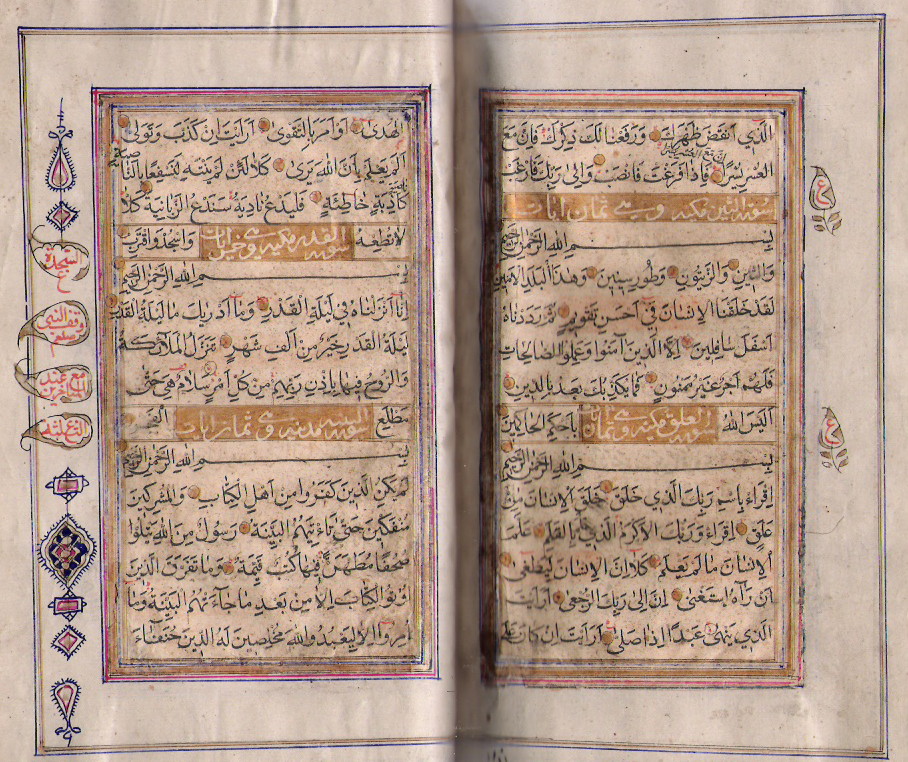 الذي انقض ظهرك ورفعنا لك ذكرك فان مع
العسر يسرا ان مع العسر يسرا فاذا فرغت فانصب والى ربك فارغب
سورة التين مكية وهي ثمان ايات
بسم الله الرحمن الرحيم
والتين والزيتون وطور سينين وهذا البلد الامين
لقد خلقنا الانسان في احسن تقويم ثم رددناه
اسفل سافلين الا الذين آمنوا وعملوا الصالحات
فلهم اجر غير ممنون فما يكذبك بعد بالدين
اليس الله باحكم الحاكمين
سورة العلق مكية وهي ثمان
بسم الله الرحمن الرحيم
اقراء باسم ربك الذي خلق خلق الانسان من
علق اقراء وربك الاكرم الذي بالقلم علم
الانسان ما لم يعلم كلا ان الانسان ليطغى
ان رآه استغنى ان الى ربك الرجعى ارايت
الذي ينهى عبدا اذا صلى ارايت ان كان على
ع
ع
الهدى او امر بالتقوى ارايت ان كذب وتولى
الم يعلم بان الله يرى كلا لئن لم ينته لنسفعا بالناصية
ناصية كاذبة خاطئة فليدع ناديه سندع الزبانية كلا
لا تطعه واسجد واقترب
سورة القدر مكية وهي خمس ايات
بسم الله الرحمن الرحيم
انا انزلناه في ليلة القدر وما ادريك ما ليلة القدر
ليلة القدر خير من الف شهر تنزل الملائكة
والروح فيها باذن ربهم من كل امر سلام هي حتى
مطلع الفجر
سورة البينة مدنية وهي ثمان ايات
بسم الله الرحمن الرحيم
لم يكن الذين كفروا من اهل الكتاب والمشركين
منفكين حتى تاءتيهم البينة رسول من الله يتلوا
صحفا مطهرة فيها كتب قيمة وما تفرق الذين
اوتوا الكتاب الا من بعد ما جاءتهم البينة وما
امروا الا ليعبدوا الله مخلصين له الدين حنفاء
السجدة
وقف النبي صلعم